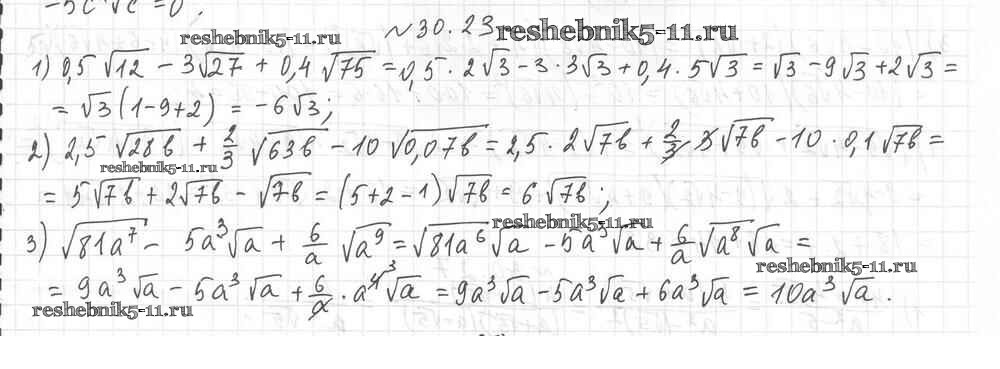 -5c³√c =0;
№30.23 reshebnik5-11.ru
reshebnik5-11.ru
1) 0,5√12 - 3√27 + 0,4√75 = 0,5·2√3 - 3·3√3 + 0,4·5√3 = √3 - 9√3 + 2√3 =
= √3(1-9+2) = -6√3;
2) 2,5√28b + 2/3 √63b - 10√0,07b = 2,5·2√7b + 2/3 3√7b - 10·0,1√7b =
reshebnik5-11.ru
= 5√7b + 2√7b - √7b = (5+2-1)√7b = 6√7b;
reshebnik5-11.ru
3) √81a⁷ - 5a³√a + 6/a √a⁹ = √81a⁶√a - 5a³√a + 6/a √a⁸√a =
reshebnik5-11.ru
= 9a³√a - 5a³√a + 6/a · a⁴ ³√a = 9a³√a - 5a³√a + 6a³√a = 10a³√a.
reshebnik5-11.ru